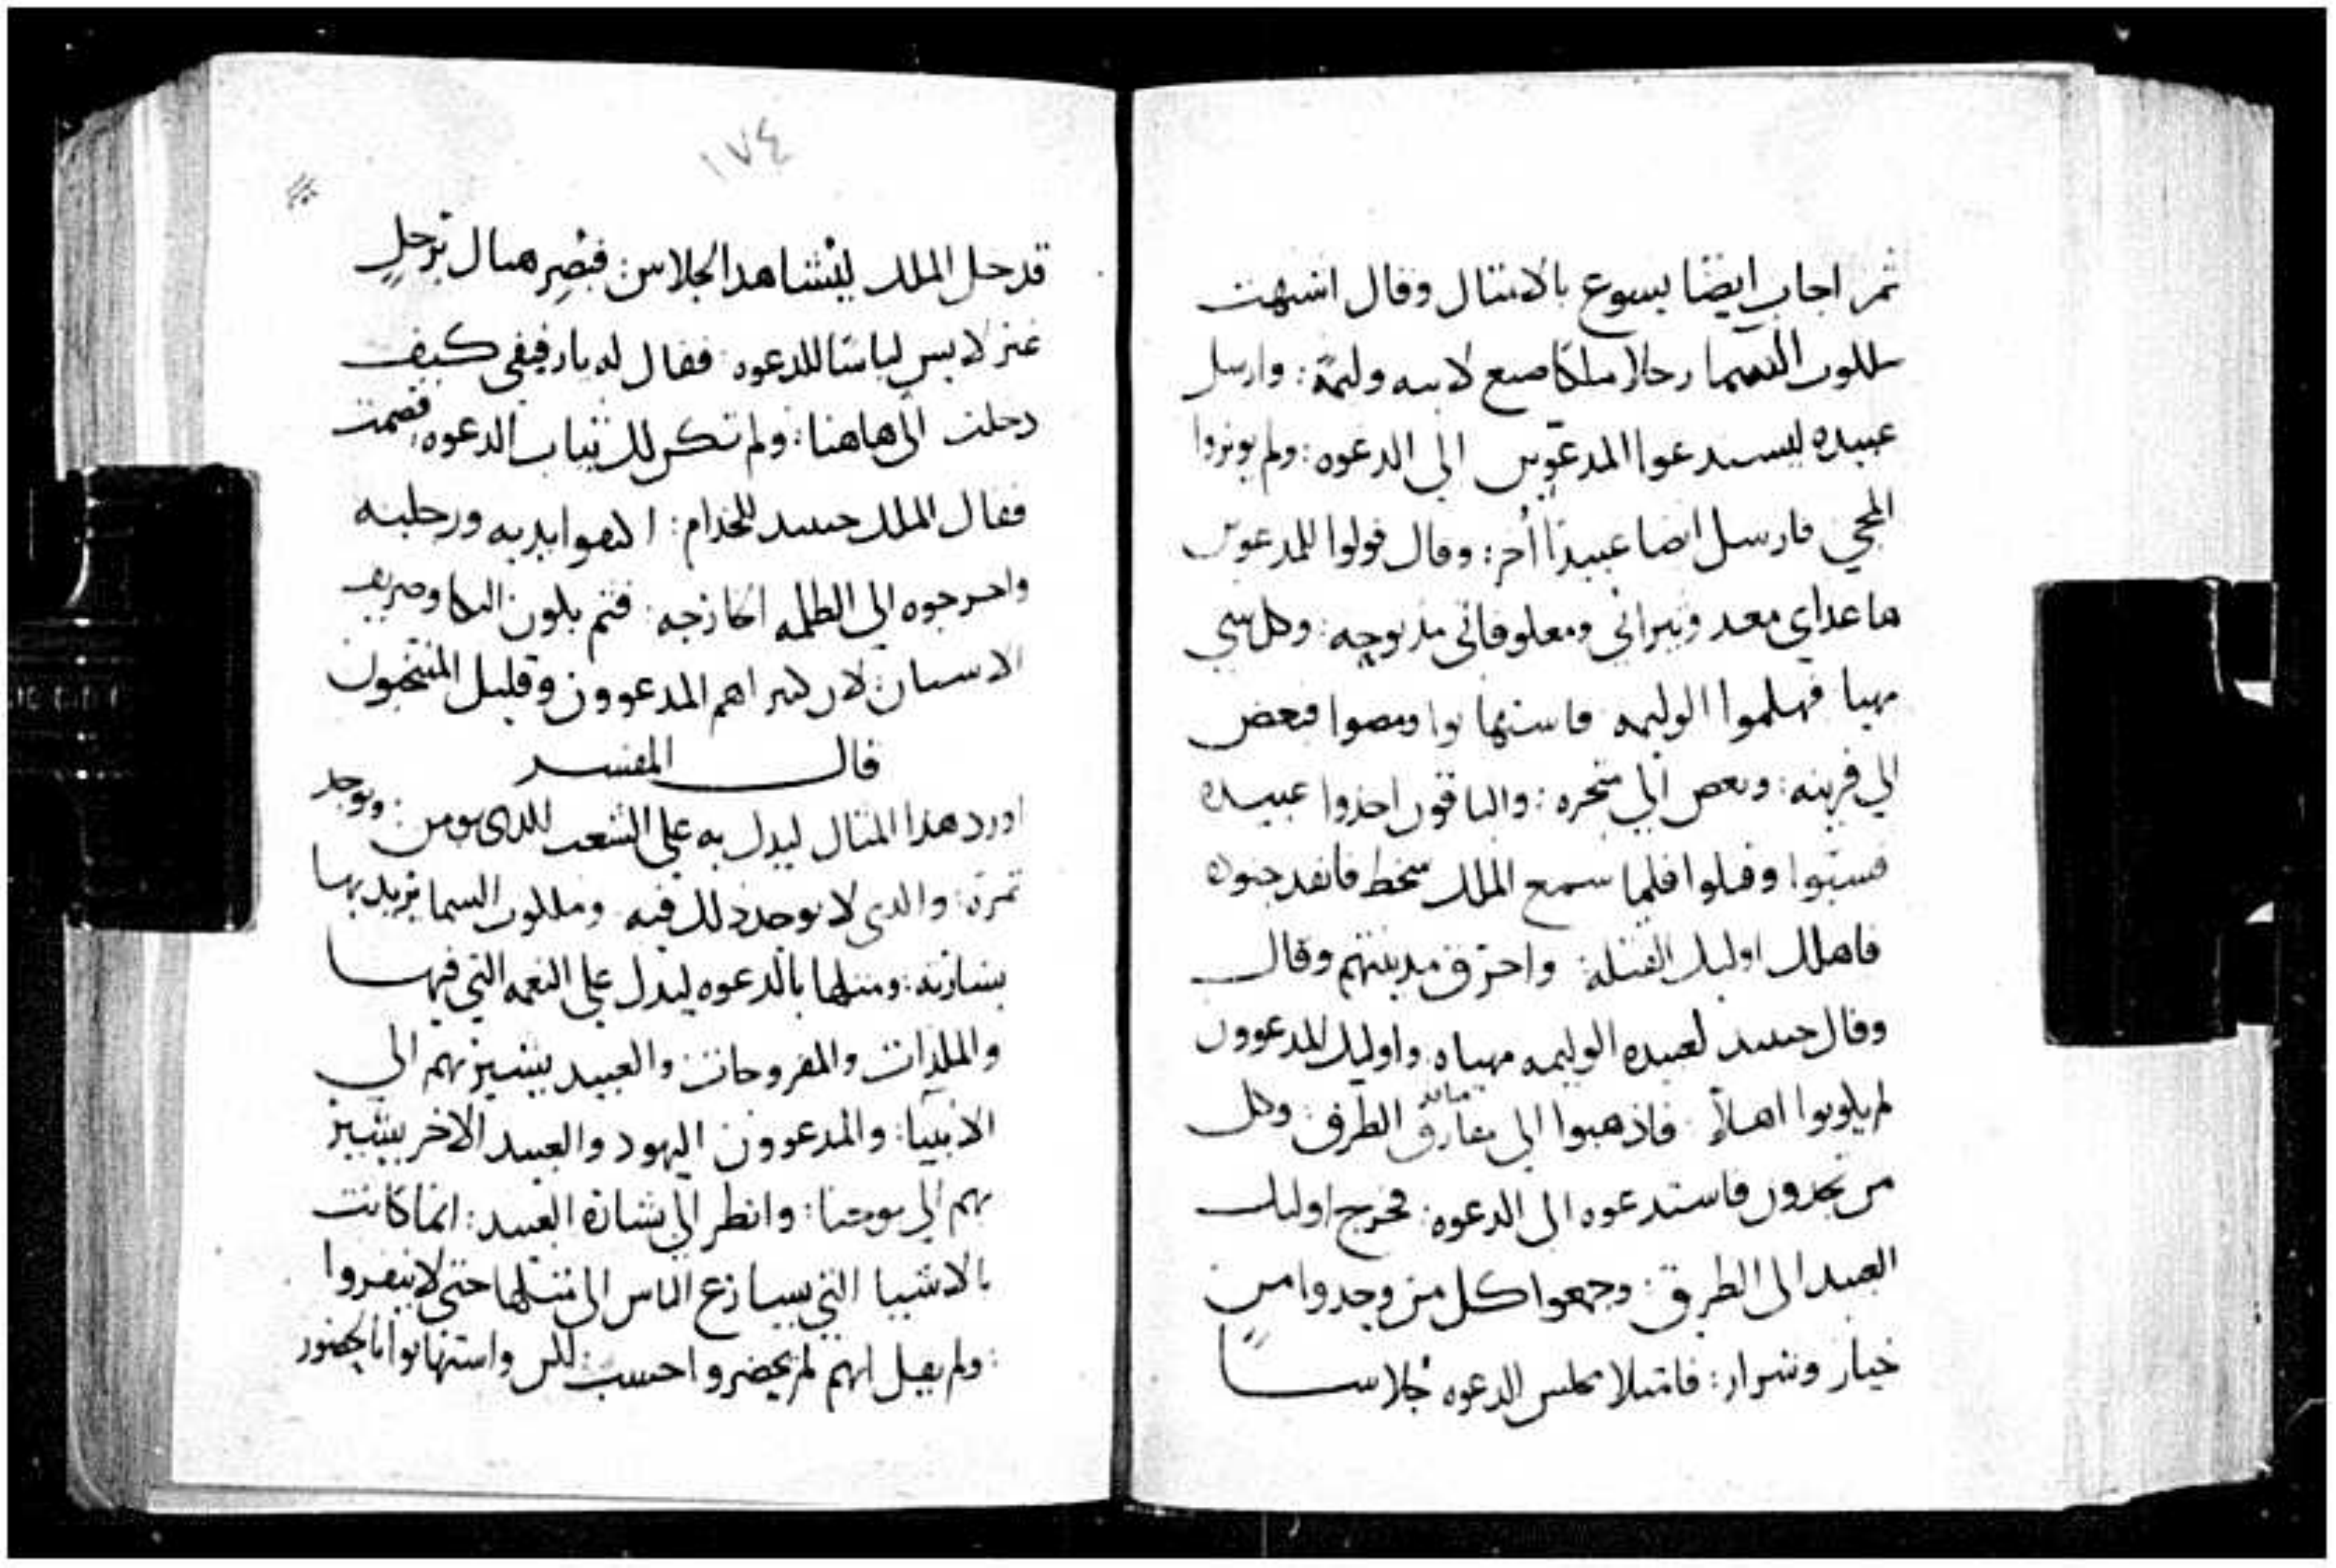 ثم اجاب ايضا يسوع بالامثال وقال اشبهت
ملكوت السما رجلا ملكا صنع لابنه وليمة: وارسل
عبيده ليستدعوا المدعوين الي الدعوه: ولم يوثروا
المجي فارسل ايضا عبيدا أخر: وقال قولوا للمدعوين
ها غداي معد وثيراني ومعلوفاتي مذبوحه: وكل شي
مهيا فهلموا الوليمه فاستهانوا ومضوا فبعض
الي قريته: وبعض الي متجره: والباقون اخذوا عبيده
فسبوا وقتلوا فلما سمع الملك سخط فانفد جنوده
فاهلك اوليك القتله: واحرق مدينتهم وقال
وقال حينيد لعبيده الوليمه مهياه واوليك المدعوون
لم يكونوا اهلاً فاذهبوا الي مفارق الطرق: وكل
من تجدون فاستدعوه الي الدعوه: فخرج اوليك
العبيد الي الطرق: وجمعوا كل من وجدوا من
خيار وشرار: فامتلا مجلس الدعوه جُلاسا
١٧٤
قدخل الملك ليشاهد الجلاس: فبصر هناك برجل
غير لابس لباسا للدعوه: فقال له يا رفيقي كيف
دخلت الي هاهنا: ولم تكن لك ثياب الدعوه: فصمت
فقال الملك حينيد للخدام: اكتفوا يديه ورجليه
واخرجوه الي الظلمه الخارجه: فثم يكون البكا وصريف
الاسنان: لان كثيرا هم المدعوون وقليل المنتخبون
قال المفسر
اورد هذا المثال ليدل به علي الشعب الدي يومن: ويوجد
ثمرة: والدي لا يوجد ذلك فيه وملكوت السما يريد بها
بشارته: ومثلها بالدعوه ليدل علي النعمه التي فيها
والملذات والمفروحات والعبيد يشير بهم الي
الانبيا: والمدعوون اليهود والعبيد الاخر يشير
بهم الي يوحنا: وانظر الي بشارة العبيد: انما كانت
بالاشيا التي يسارع الناس الي مثلها حتي لا ينفروا
: ولم يقل انهم لم يحضروا احسب لكن واستهانوا بالحضور